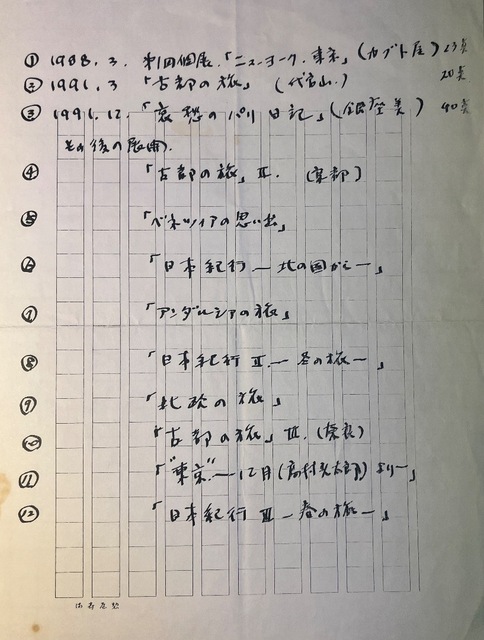 ① 1988.3. 第1回個展.「ニューヨーク.東京」(カブト屋) 23点
② 1991.3 「古都の旅」 (代官山) 20点
③ 1991.12. 「哀愁のパリ日記」(銀座美) 40点
その後の展開.
④ 「古都の旅」Ⅱ. (京都)
⑤ 「ベネツィアの思い出」
⑥ 「日本紀行 ― 北の国から ―」
⑦ 「アンダルシアの旅」
⑧ 「日本紀行 Ⅱ. ― 冬の旅 ―」
⑨ 「北欧の旅」
⑩ 「古都の旅」Ⅲ. (奈良)
⑪ 「"東京" ― 12月(高村光太郎)より―」
⑫ 「日本紀行 Ⅲ ― 春の旅 ―」